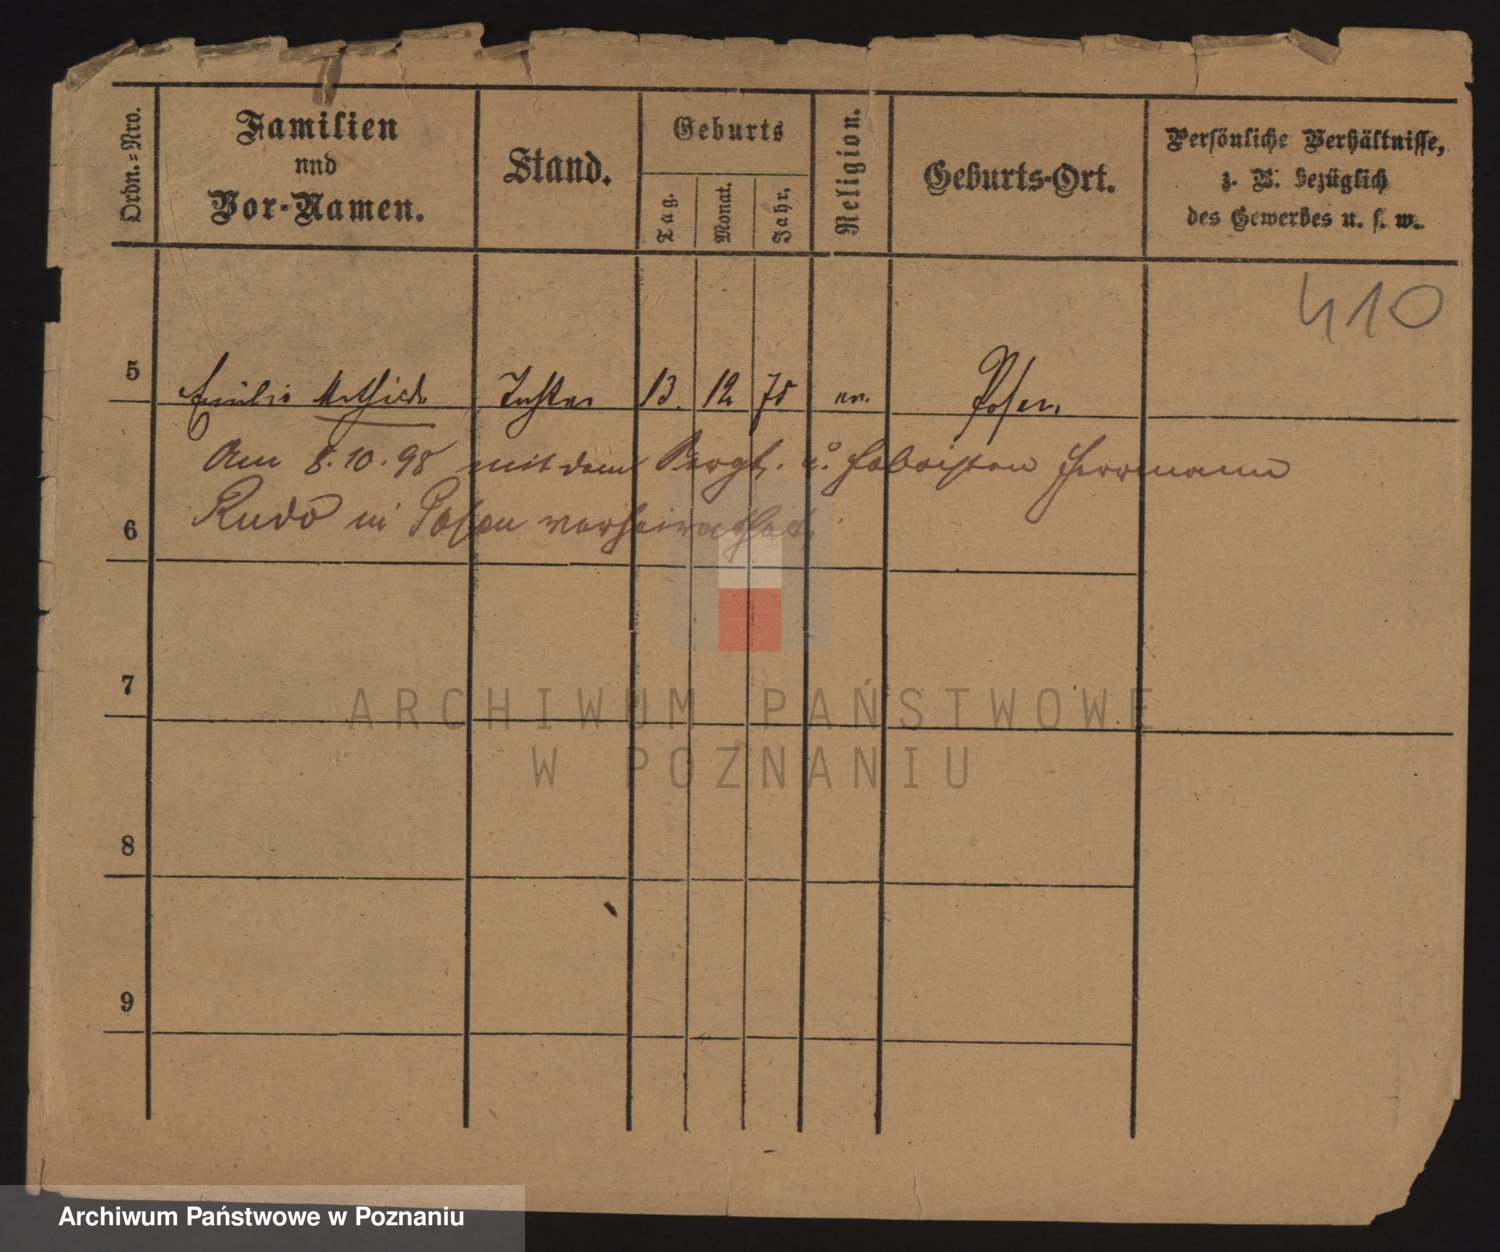 Ordn.=Nro.
Familien
nnd
Vor-Namen.
Stand.
Geburts
Tag.
Monat.
Jahr.
Religion.
Geburts-Ort.
Persönliche Verhältnisse,
z. B. bezüglich
des Gewerbes u. s. w.
410
5 Emilie Mathilde Tochter 13. 12. 75 ev. Posen
Am 8.10.98 mit dem u. Fabrikten Herrmann
6 Rudo in Posen verheirathet.
7
8
9
ARCHIWUM PAŃSTWOWE
W POZNANIU
Archiwum Państwowe w Poznaniu